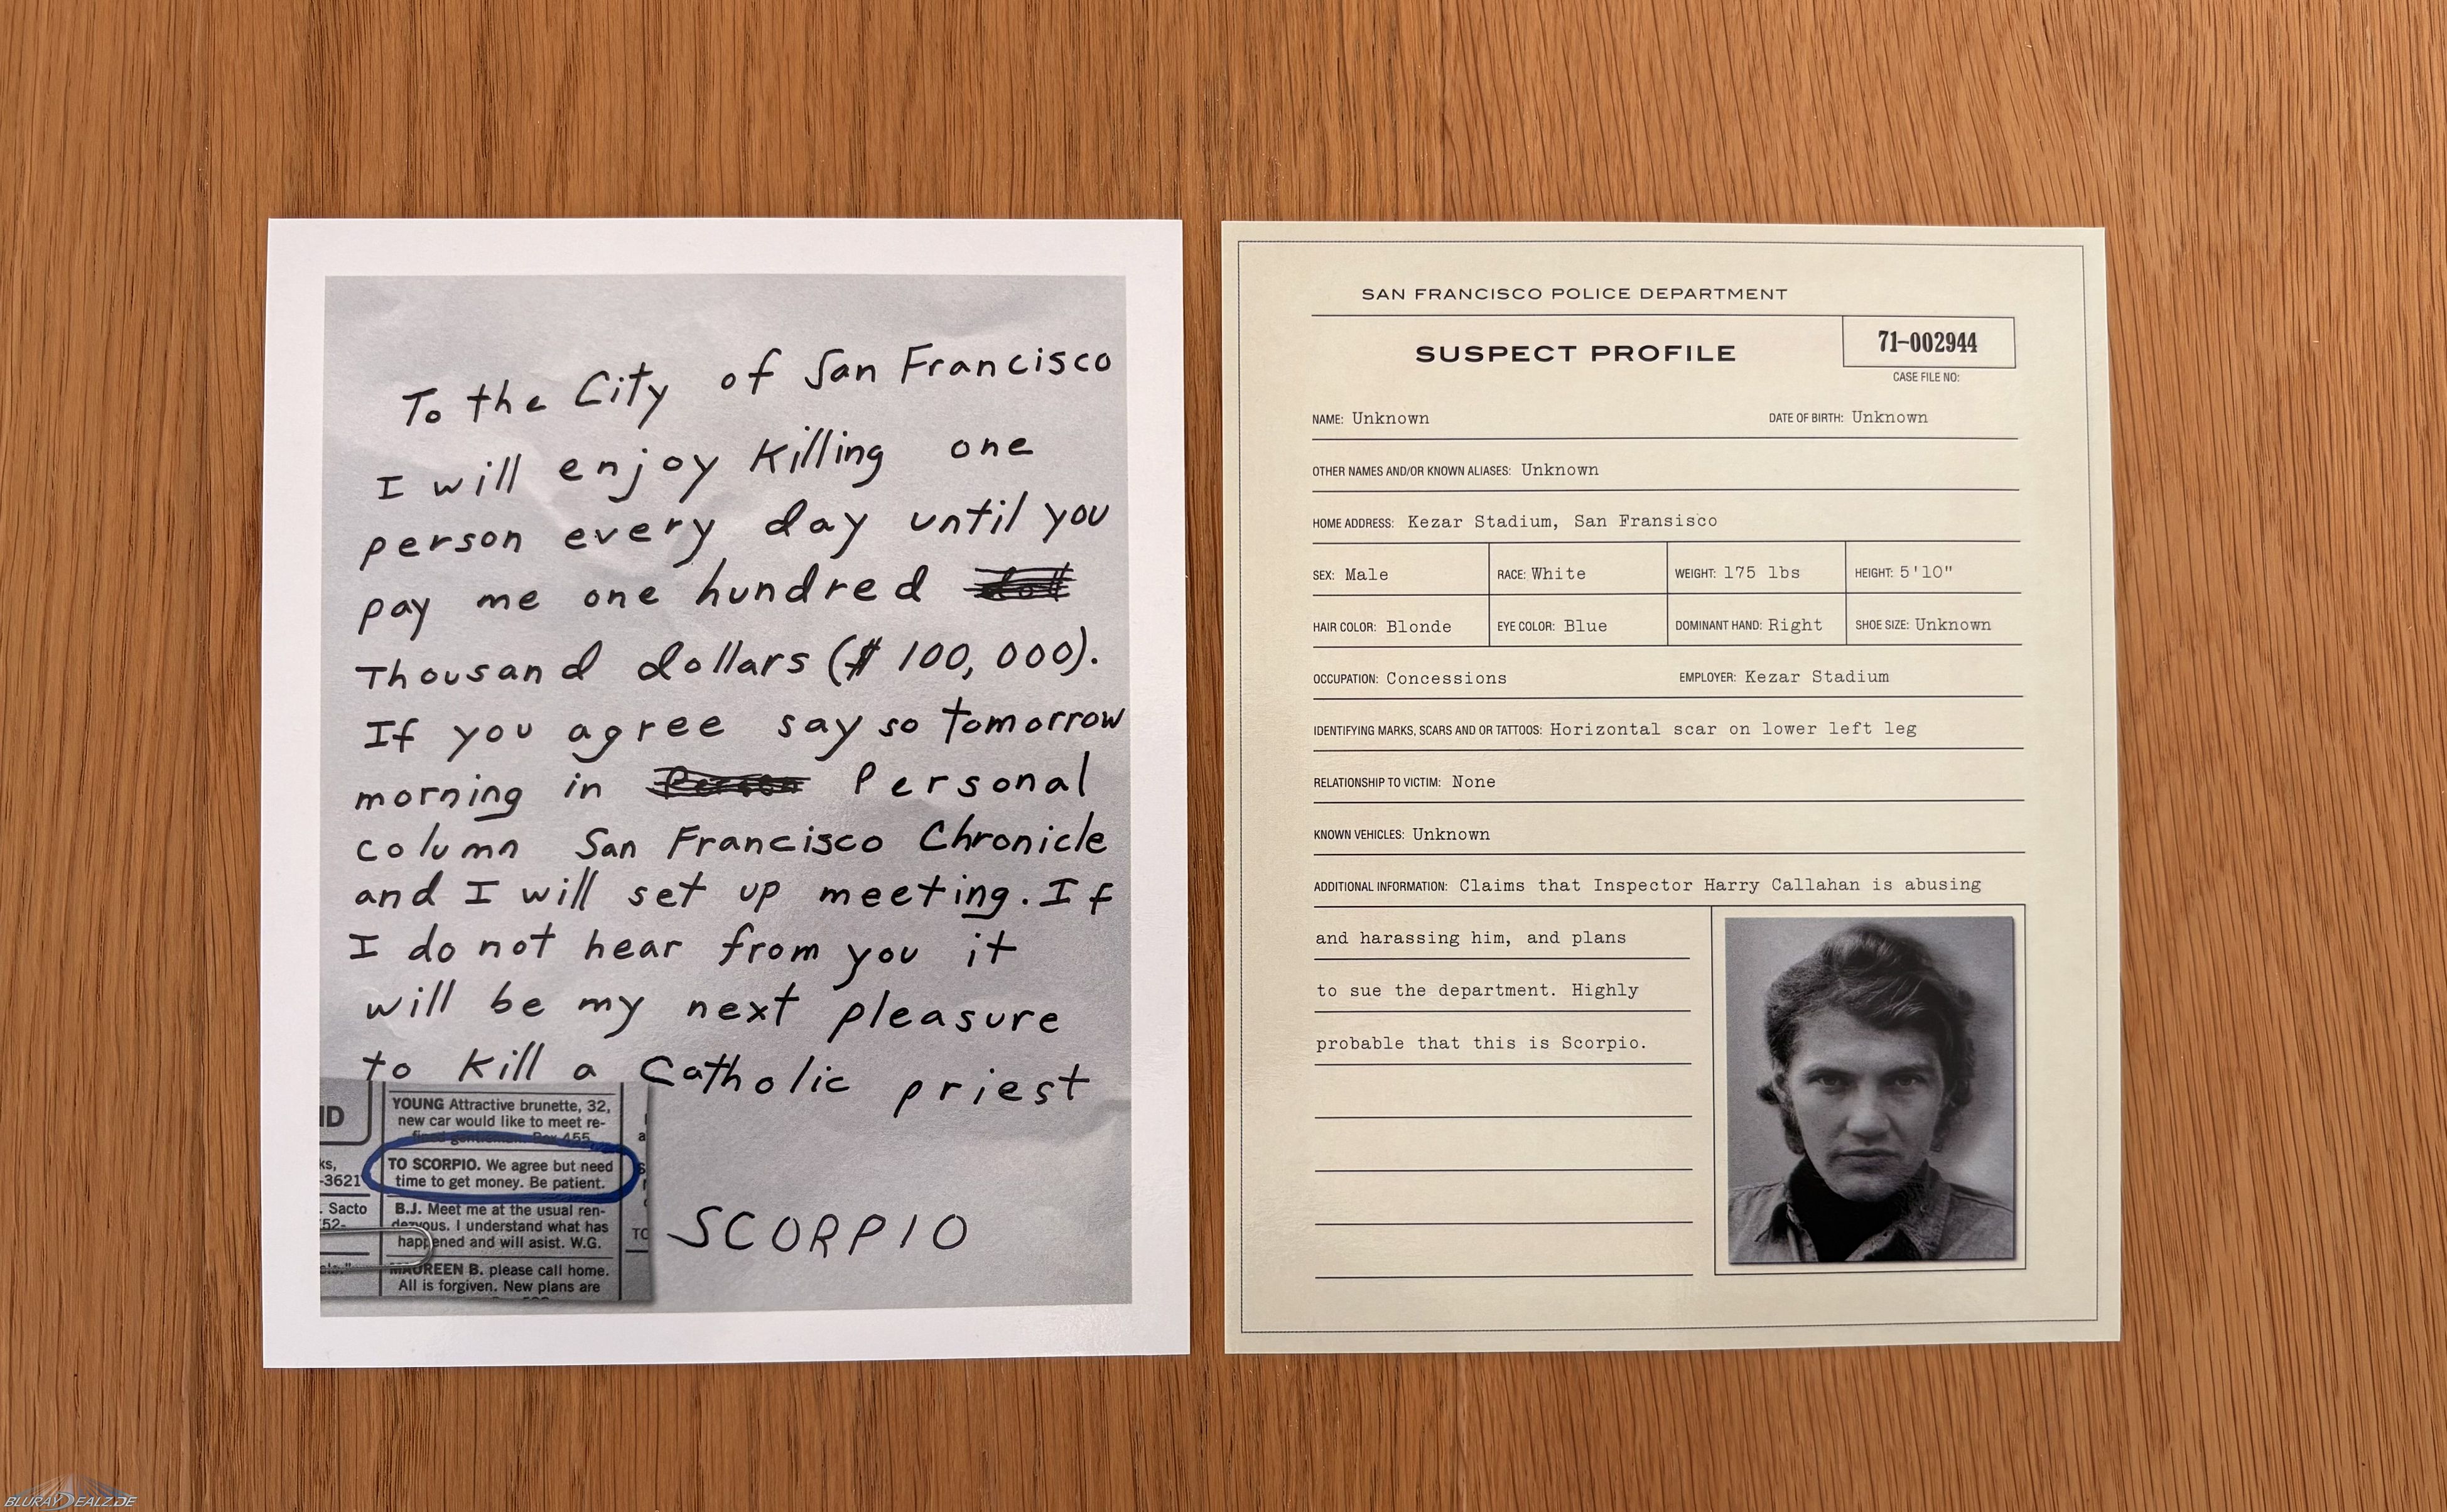 To the City of San Francisco
I will enjoy killing one
person every day until you
pay me one hundred
Thousand dollars ($ 100,000).
If you agree say so tomorrow
morning in Personal
column San Francisco Chronicle
and I will set up meeting. If
I do not hear from you it
will be my next pleasure
to kill a Catholic priest
YOUNG Attractive brunette, 32,
new car would like to meet re-
fined gentleman. Box 455
TO SCORPIO. We agree but need
time to get money. Be patient.
B.J. Meet me at the usual ren-
dezvous. I understand what has
happened and will asist. W.G.
MAUREEN B. please call home.
All is forgiven. New plans are
ks,
-3621
. Sacto
SCORPIO
SAN FRANCISCO POLICE DEPARTMENT
SUSPECT PROFILE
71-002944
CASE FILE NO:
NAME: Unknown DATE OF BIRTH: Unknown
OTHER NAMES AND/OR KNOWN ALIASES: Unknown
HOME ADDRESS: Kezar Stadium, San Fransisco
SEX: Male RACE: White WEIGHT: 175 lbs HEIGHT: 5'10"
HAIR COLOR: Blonde EYE COLOR: Blue DOMINANT HAND: Right SHOE SIZE: Unknown
OCCUPATION: Concessions EMPLOYER: Kezar Stadium
IDENTIFYING MARKS, SCARS AND OR TATTOOS: Horizontal scar on lower left leg
RELATIONSHIP TO VICTIM: None
KNOWN VEHICLES: Unknown
ADDITIONAL INFORMATION: Claims that Inspector Harry Callahan is abusing
and harassing him, and plans
to sue the department. Highly
probable that this is Scorpio.
BLURAYDEALZ.DE